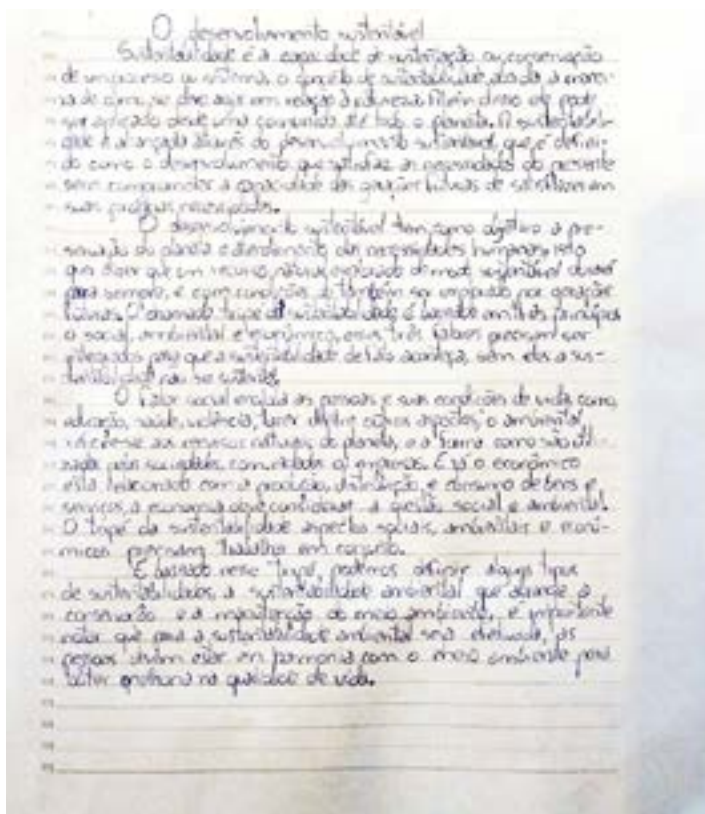 O desenvolvimento sustentável
Sustentabilidade é a capacidade de sustentação ou conservação
de um processo ou sistema, o conceito de sustentabilidade
se em relação à natureza. Além disso ele pode
ser aplicado desde uma comunidade até todo o planeta. A sustentabili-
dade é alcançada através do desenvolvimento sustentável, que é defini-
do como o desenvolvimento que satisfaz as necessidades do presente
sem comprometer a capacidade das gerações futuras de satisfazerem
suas próprias necessidades.
O desenvolvimento sustentável tem como objetivo a pre-
servação do planeta e atendimento das necessidades humanas, isto
quer dizer que um recurso natural explorado de modo sustentável durará
para sempre, e com condições de também ser explorado por gerações
futuras. O chamado tripé da sustentabilidade é baseado em três princípios
o social, ambiental e econômico, esses três fatores precisam ser
integrados para que a sustentabilidade de fato aconteça, sem eles a sus-
tentabilidade não se sustenta.
O fator social engloba as pessoas e suas condições de vida, como,
educação, saúde, violência, lazer dentre outros aspectos, o ambiental
refere-se aos recursos naturais do planeta, e a forma como são utili-
zados pela sociedade, comunidades ou empresas. E já o econômico
está relacionado com a produção, distribuição e consumo de bens e
serviços, a economia deve considerar a questão social e ambiental.
O tripé da sustentabilidade aspectos sociais, ambientais e econô-
micos precisam trabalhar em conjunto.
E baseado nesse "tripé", podemos definir alguns tipos
de sustentabilidades, a sustentabilidade ambiental que abrange a
conservação e a manutenção do meio ambiente, é importante
notar que para a sustentabilidade ambiental seja efetivada, as
pessoas devem estar em harmonia com o meio ambiente para
obter melhoria na qualidade de vida.